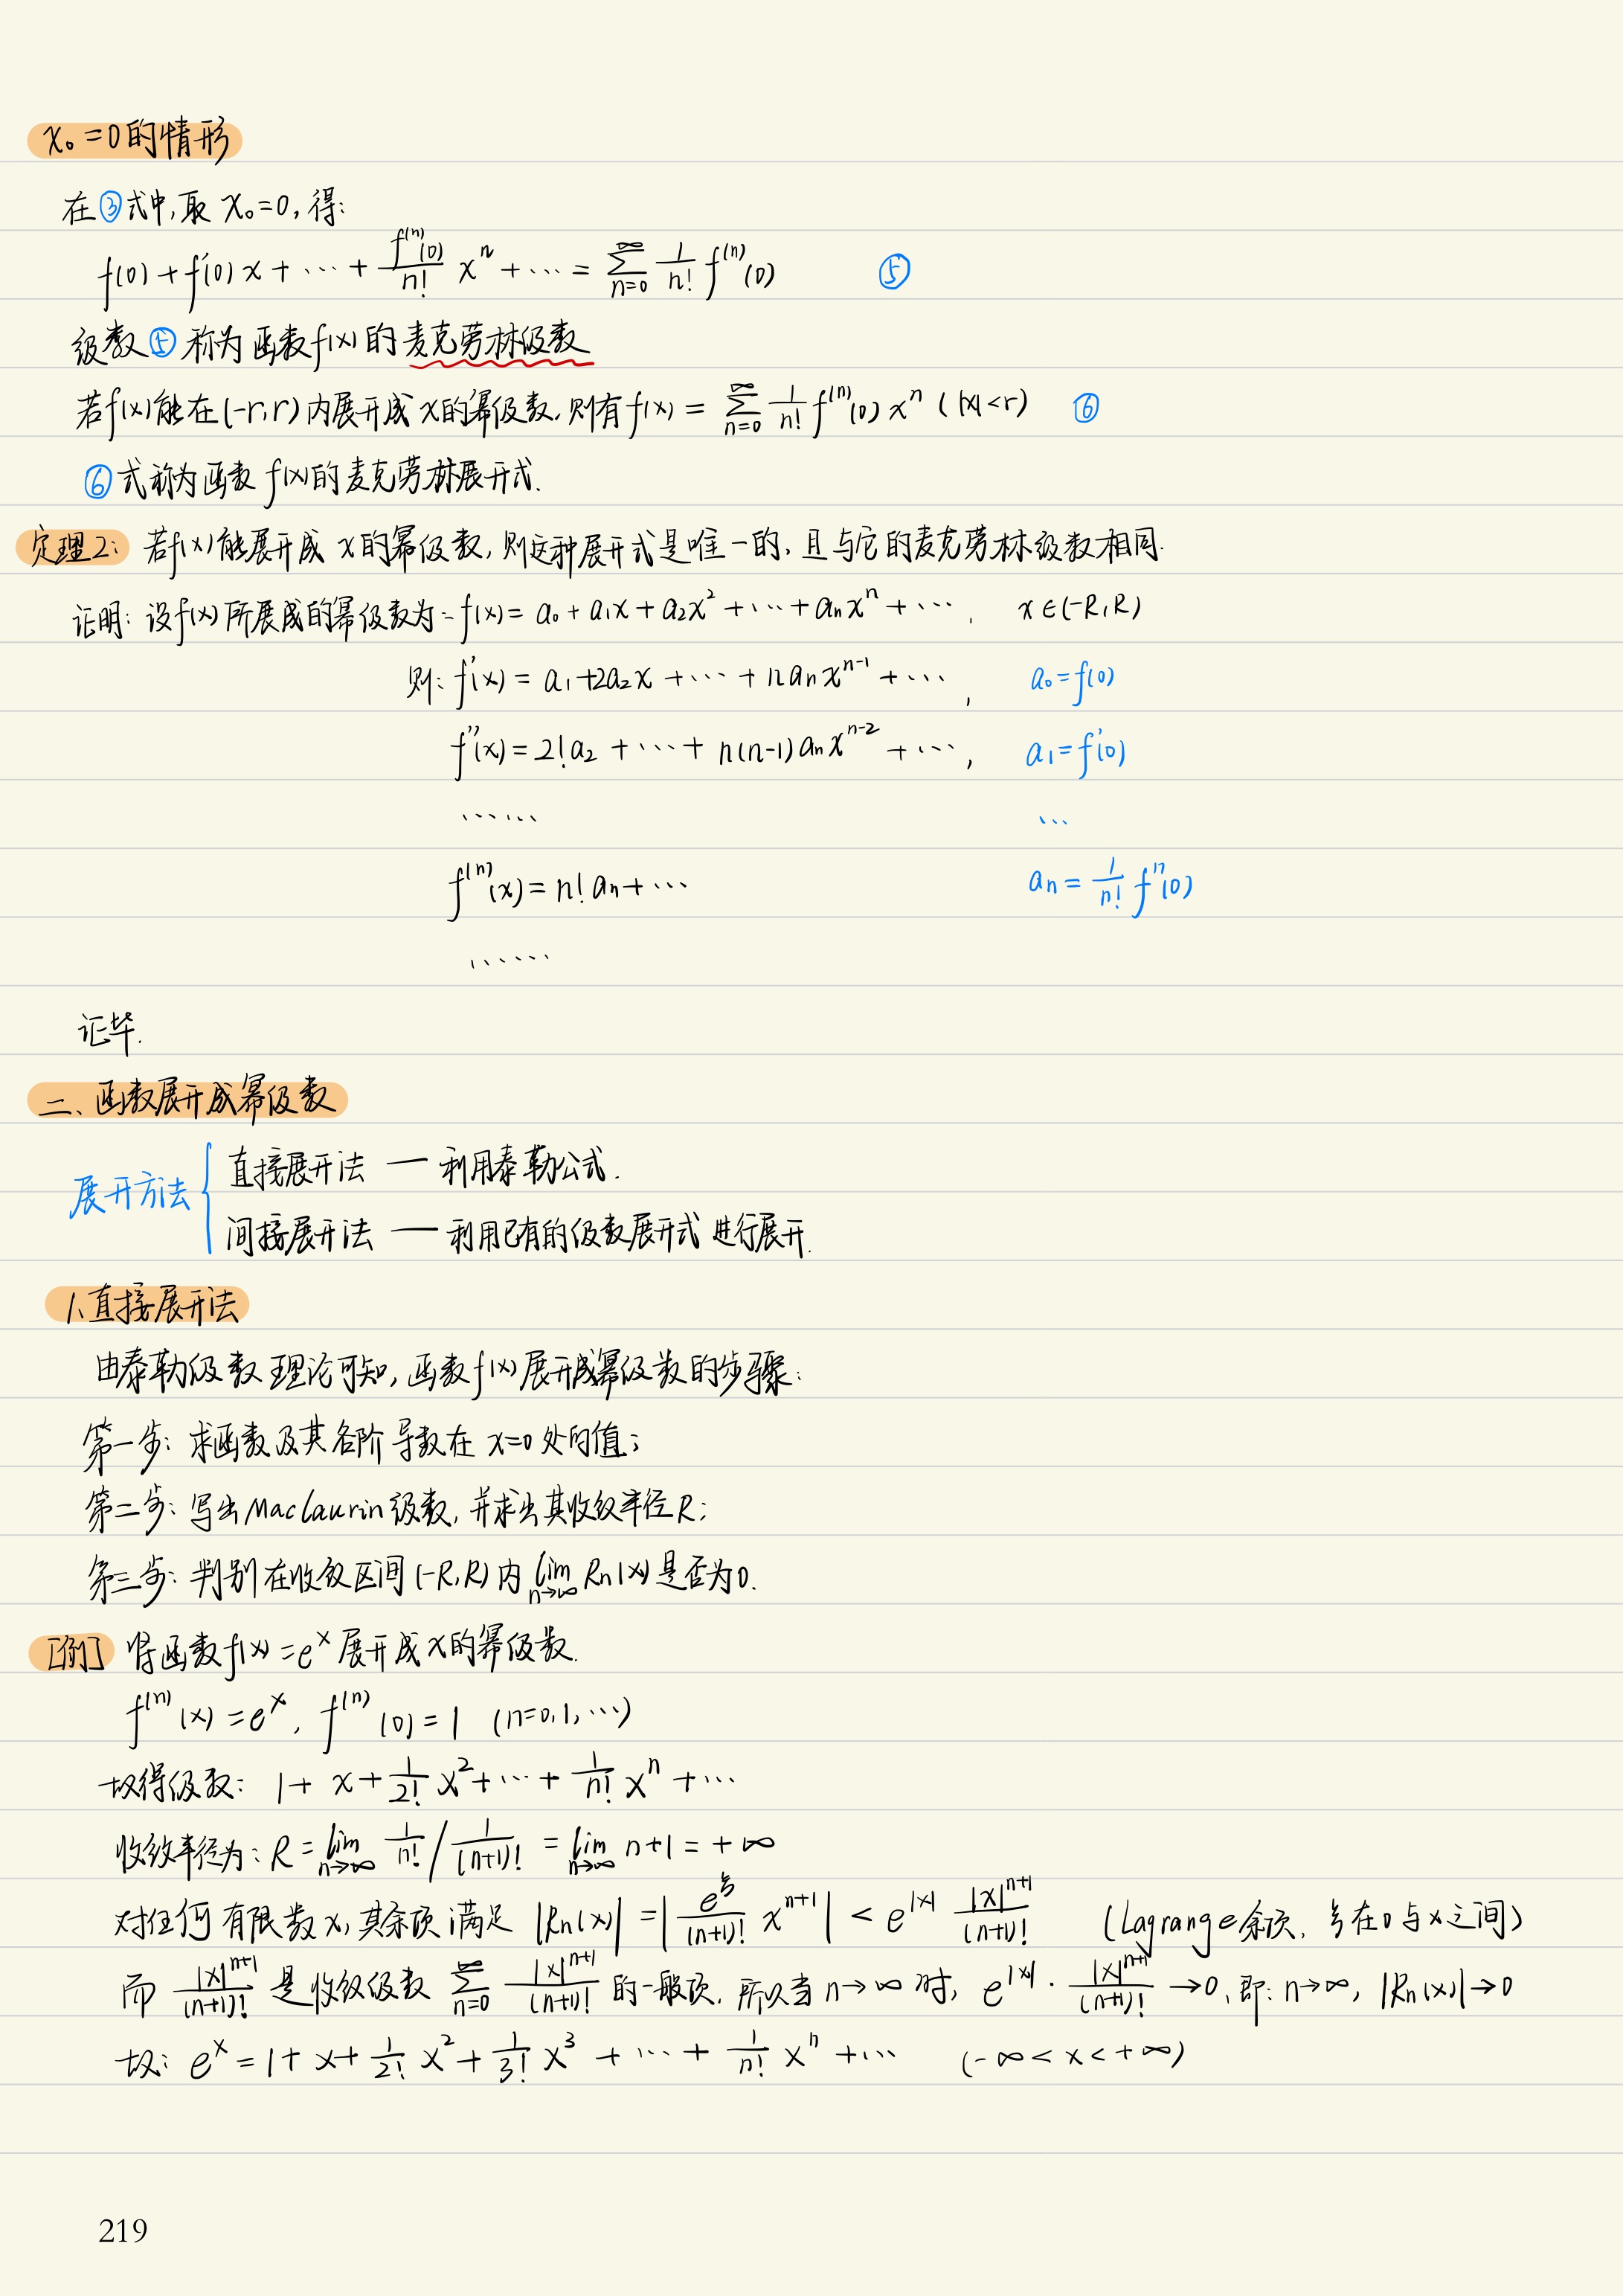 x₀=0的情形
在③式中,取 x₀=0,得:
f(0)+f'(0)x+⋯+\frac{f^{(n)}(0)}{n!}x^n+⋯=\sum_{n=0}^{∞}\frac{1}{n!}f^{(n)}(0) ⑤
级数⑤称为函数f(x)的麦克劳林级数
若f(x)能在(-r,r)内展开成x的幂级数,则有f(x)=\sum_{n=0}^{∞}\frac{1}{n!}f^{(n)}(0)x^n (|x|<r) ⑥
⑥式称为函数f(x)的麦克劳林展开式.
定理2: 若f(x)能展开成x的幂级数,则这种展开式是唯一的,且与它的麦克劳林级数相同.
证明: 设f(x)所展成的幂级数为: f(x)=a₀+a₁x+a₂x²+⋯+aₙx^n+⋯, x∈(-R,R)
则: f'(x)=a₁+2a₂x+⋯+naₙx^{n-1}+⋯, a₀=f(0)
f''(x)=2!a₂+⋯+n(n-1)aₙx^{n-2}+⋯, a₁=f'(0)
⋯⋯ ⋯
f^{(n)}(x)=n!aₙ+⋯ aₙ=\frac{1}{n!}f^{n}(0)
⋯⋯
证毕.
二、函数展开成幂级数
展开方法 {
直接展开法 — 利用泰勒公式.
间接展开法 — 利用已有的级数展开式进行展开.
1、直接展开法
由泰勒级数理论可知,函数f(x)展开成幂级数的步骤:
第一步: 求函数及其各阶导数在x=0处的值;
第二步: 写出Maclaurin级数,并求出其收敛半径R;
第三步: 判别在收敛区间(-R,R)内\lim_{n→∞}Rₙ(x)是否为0.
[例] 将函数f(x)=e^x展开成x的幂级数.
f^{(n)}(x)=e^x, f^{(n)}(0)=1 (n=0,1,⋯)
故得级数: 1+x+\frac{1}{2!}x²+⋯+\frac{1}{n!}x^n+⋯
收敛半径为: R=\lim_{n→∞}\frac{1}{n!}/\frac{1}{(n+1)!}=\lim_{n→∞}n+1=+∞
对任何有限数x,其余项满足 |Rₙ(x)|=|\frac{e^ξ}{(n+1)!}x^{n+1}|<e^{|x|}\frac{|x|^{n+1}}{(n+1)!} (Lagrange余项, ξ在0与x之间)
而\frac{|x|^{n+1}}{(n+1)!}是收敛级数\sum_{n=0}^{∞}\frac{|x|^{n+1}}{(n+1)!}的一般项,所以当n→∞时, e^{|x|}·\frac{|x|^{n+1}}{(n+1)!}→0,即: n→∞, |Rₙ(x)|→0
故: e^x=1+x+\frac{1}{2!}x²+\frac{1}{3!}x³+⋯+\frac{1}{n!}x^n+⋯ (-∞<x<+∞)
219